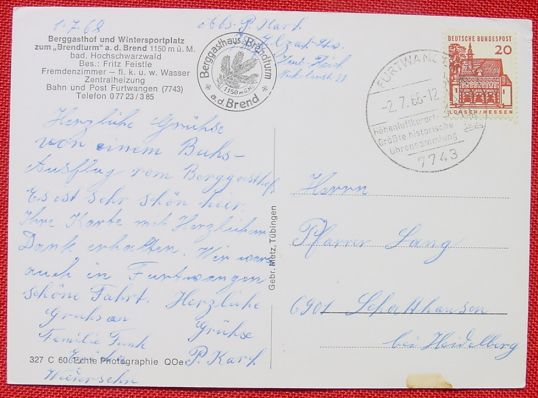 1.7.68
Berggasthof und Wintersportplatz
zum „Brendturm" a. d. Brend 1150 m ü. M.
bad. Hochschwarzwald
Bes.: Fritz Feistle
Fremdenzimmer – fl. k. u. w. Wasser
Zentralheizung
Bahn und Post Furtwangen (7743)
Telefon 0 77 23 / 3 85
Abs. P. Karf
Berggasthaus Brendturm
1150 m ü. M.
a. d. Brend
DEUTSCHE BUNDESPOST
20
LORSCH/HESSEN
FURTWANGEN
-2.7.68-12
Höhenluftkurort
Größte historische
Uhrensammlung
7743
Herzliche Grüße
von einem
Ausflug vom Berggasthof
Es ist sehr schön hier,
Ihre Karte mit Herzlichem
Dank erhalten. Wir waren
auch in Furtwangen
schöne Fahrt. Herzliche
Grüße
Familie
P. Karf
Wiedersehn
Gebr. Metz, Tübingen
Herrn
Pfarrer Lang
6901 Schatthausen
bei Heidelberg
327 C 60 Echte Photographie